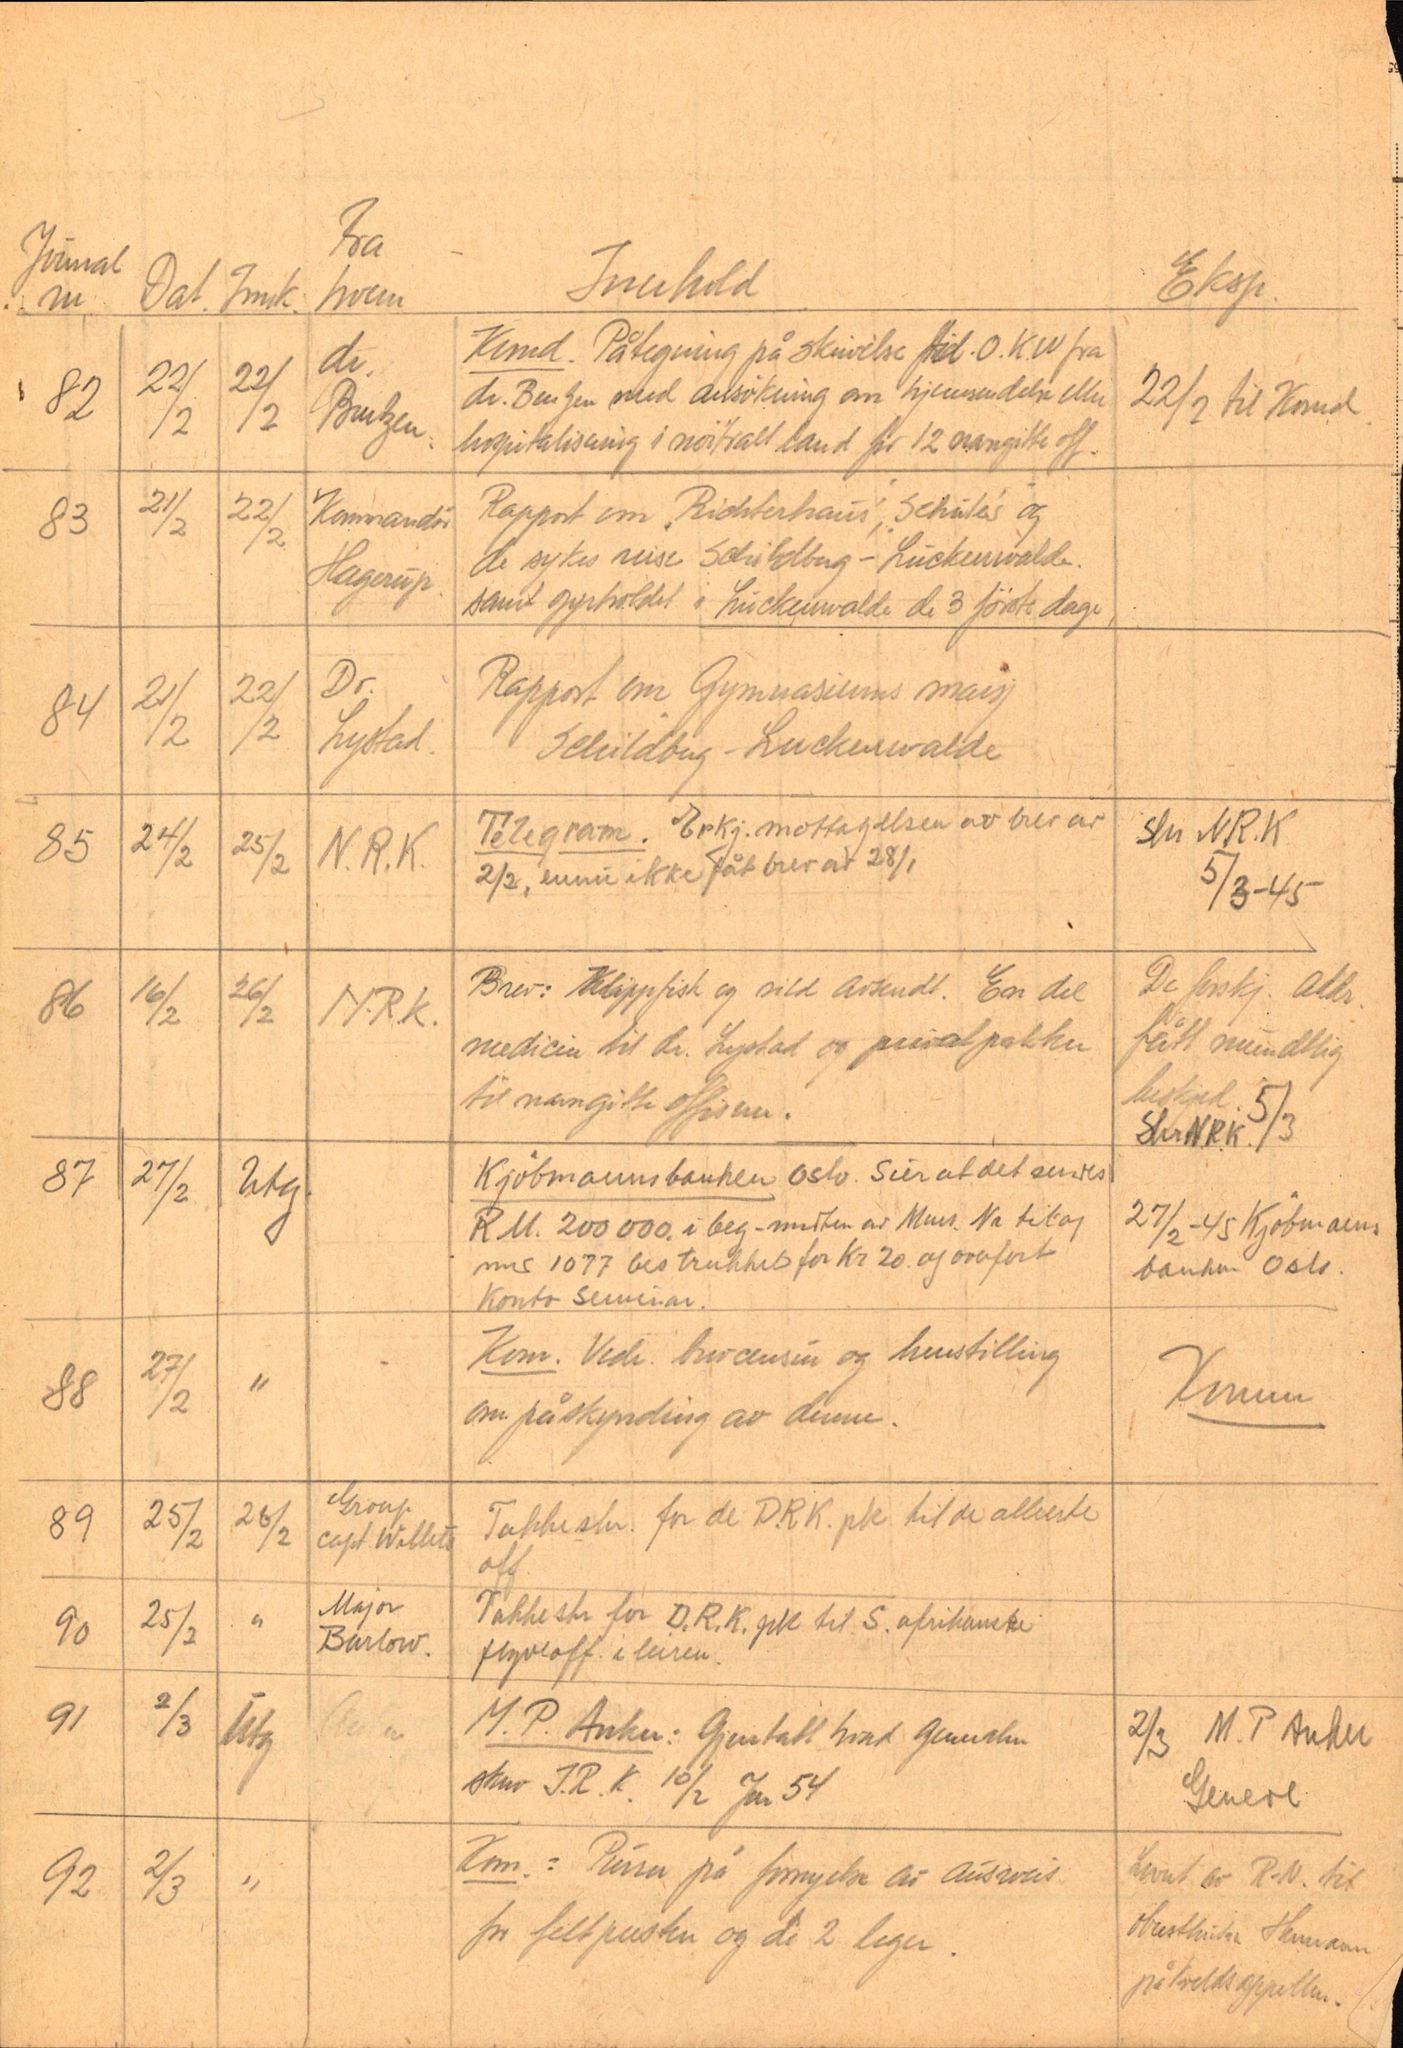 Journal nr. Dat. Innk. Fra hvem Innhold Eksp.
82 22/2 22/2 dr. Bentzen.
Komd. Påtegning på skrivelse til O.K.W fra
dr. Bentzen med ansökning om hjemsendelse eller
hospitalisering i nöitralt land for 12 navngitte off.
22/2 til Komd.
83 21/2 22/2 Kommandör Hagerup.
Rapport om "Richterhaus", "Schüte's" og
de sykes reise Schildberg - Luckenwalde.
samt oppholdet i Luckenwalde de 3 förste dage,
84 21/2 22/2 Dr. Lystad.
Rapport om Gymnasiums marsj
Schildberg - Luckenwalde
85 24/2 25/2 N.R.K.
Telegram. Erkj. mottagelsen av brev av
2/2, ennu ikke fåt brev av 28/1
Skr N.R.K
5/3-45
86 16/2 26/2 N.R.K.
Brev: Klippfisk og sild avsendt. En del
medicin til dr. Lystad og privatpakker
til navngitte offiserer.
De forskj. adkr.
fått mundtlig
beskjed.
Skr N.R.K. 5/3
87 27/2 Utg.
Kjöbmannsbanken Oslo. Sier at det sendes
R.M. 200 000. i beg-midten av Mars. Na
nrs 1077 bes trukket for Kr 20. og overfört
Konto Seminar.
27/2-45 Kjöbmanns
banken Oslo.
88 27/2 "
Kom. Vedr. brevcensur og henstilling
om påskynding av denne.
Komm
89 25/2 28/2 Group capt. Willets
Takkeskr. for de D.R.K. pk til de allierte
off.
90 25/2 " Major Barlow.
Takkeskr for D.R.K. pk til S. afrikanske
flyveoff. i leiren.
91 2/3 Utg
M. P. Anker: Gjentatt hvad Generalen
skrev I.R.K. 10/2 Jnr 54
2/3 M. P Anker
Genere
92 2/3 "
Kom.: Purrer på fornyelse av Ausweis
for feltpresten og de 2 leger.
Levert av R-N. til
Hermann
på kveldsappellen.